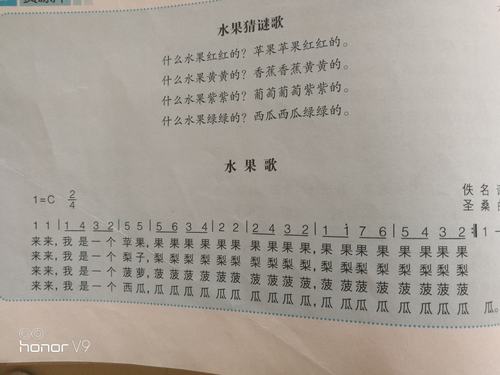 水果猜谜歌
什么水果红红的？苹果苹果红红的。
什么水果黄黄的？香蕉香蕉黄黄的。
什么水果紫紫的？葡萄葡萄紫紫的。
什么水果绿绿的？西瓜西瓜绿绿的。
水果歌
1=C 2/4
佚名
圣桑
1 1 | 1 4 3 2 | 5 5 | 5 6 3 4 | 2 2 | 2 4 3 2 | 1 1 7 6 | 5 4 3 2 :‖ 1 —
来来，我是一个 苹果，果果果果 果果 果果果，果 果果果 果果果果
来来，我是一个 梨子，梨梨梨梨 梨梨 梨梨梨，梨 梨梨梨 梨梨梨梨
来来，我是一个 菠萝，菠菠菠菠 菠菠 菠菠菠，菠 菠菠菠 菠菠菠菠
来来，我是一个 西瓜，瓜瓜瓜瓜 瓜瓜 瓜瓜瓜，瓜 瓜瓜瓜 瓜瓜瓜瓜 瓜。
honor V9